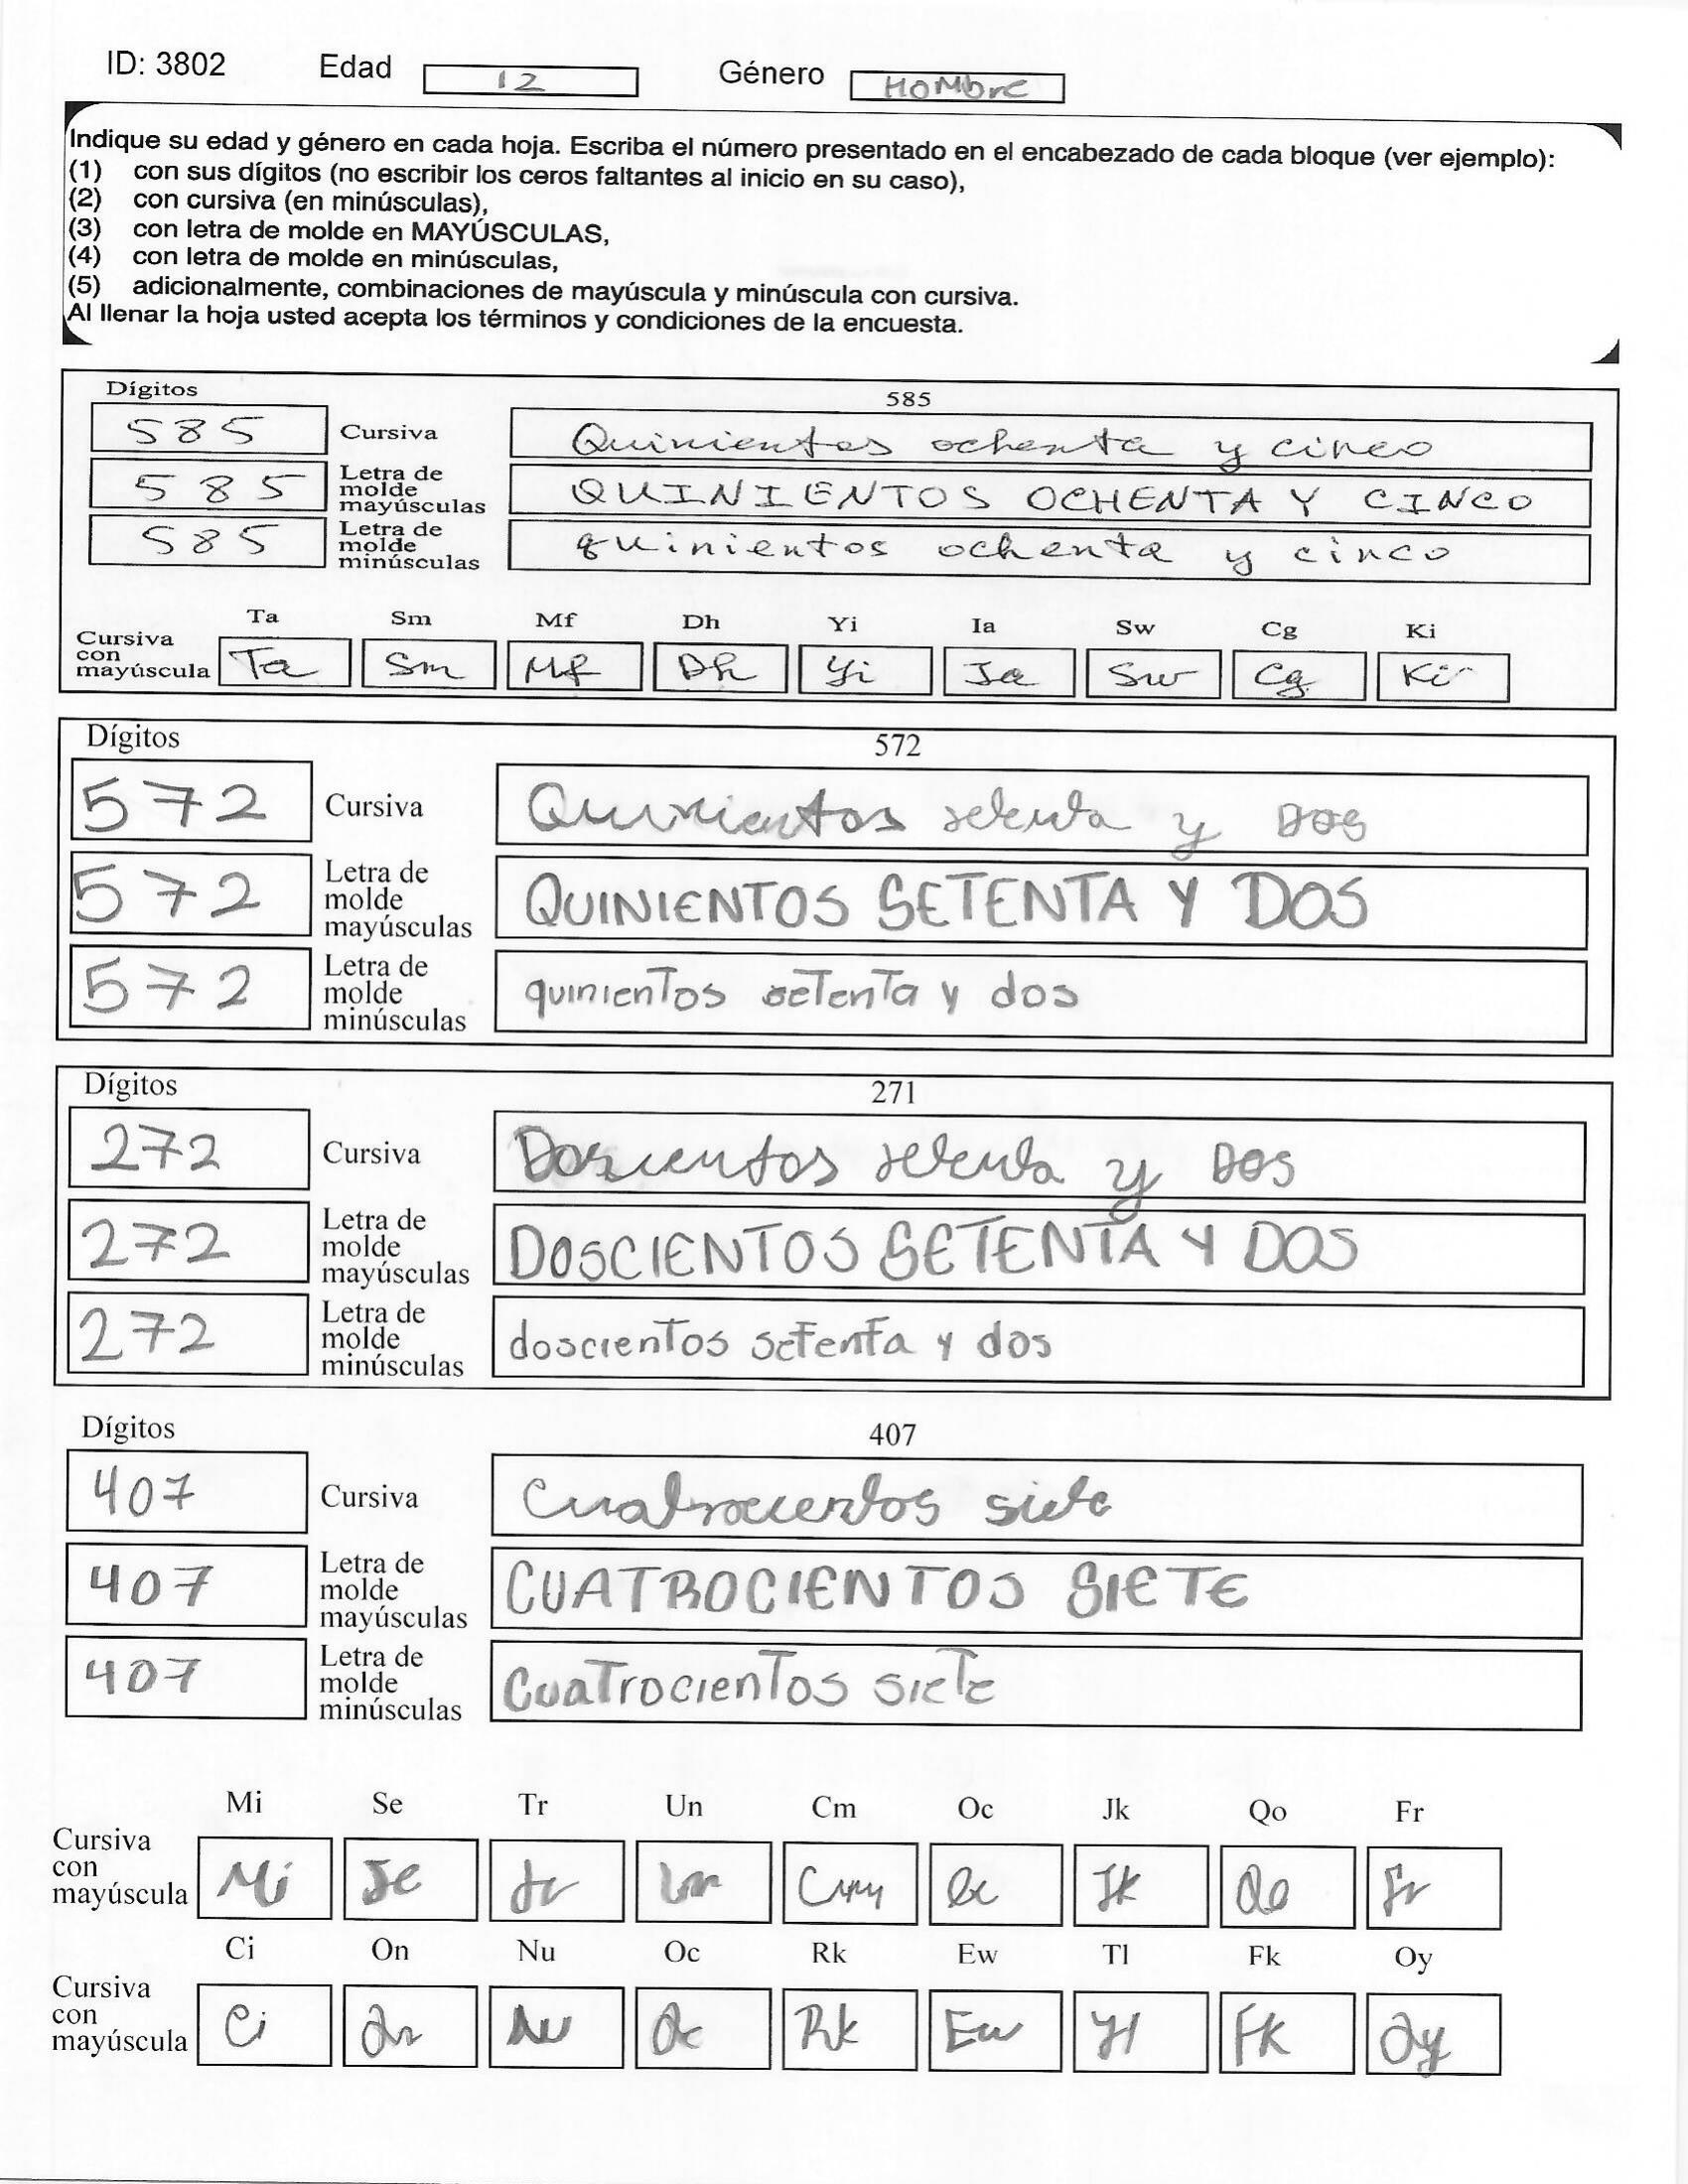 ID: 3802 Edad 12 Género HoMbre
Indique su edad y género en cada hoja. Escriba el número presentado en el encabezado de cada bloque (ver ejemplo):
(1) con sus dígitos (no escribir los ceros faltantes al inicio en su caso),
(2) con cursiva (en minúsculas),
(3) con letra de molde en MAYÚSCULAS,
(4) con letra de molde en minúsculas,
(5) adicionalmente, combinaciones de mayúscula y minúscula con cursiva.
Al llenar la hoja usted acepta los términos y condiciones de la encuesta.
Dígitos 585
585 Cursiva Quinientos ochenta y cinco
585 Letra de molde mayúsculas QUINIENTOS OCHENTA Y CINCO
585 Letra de molde minúsculas quinientos ochenta y cinco
Ta Sm Mf Dh Yi Ia Sw Cg Ki
Cursiva con mayúscula Ta Sm Mf Dh Yi Ia Sw Cg Ki
Dígitos 572
572 Cursiva Quinientos setenta y Dos
572 Letra de molde mayúsculas QUINIENTOS SETENTA Y DOS
572 Letra de molde minúsculas quinientos setenta y dos
Dígitos 271
272 Cursiva Doscientos setenta y Dos
272 Letra de molde mayúsculas DOSCIENTOS SETENTA Y DOS
272 Letra de molde minúsculas doscientos setenta y dos
Dígitos 407
407 Cursiva Cuatrocientos siete
407 Letra de molde mayúsculas CUATROCIENTOS SIETE
407 Letra de molde minúsculas Cuatrocientos siete
Mi Se Tr Un Cm Oc Jk Qo Fr
Cursiva con mayúscula Mi Se Tr Un Cm Oc Jk Qo Fr
Ci On Nu Oc Rk Ew Tl Fk Oy
Cursiva con mayúscula Ci On Nu Oc Rk Ew Tl Fk Oy